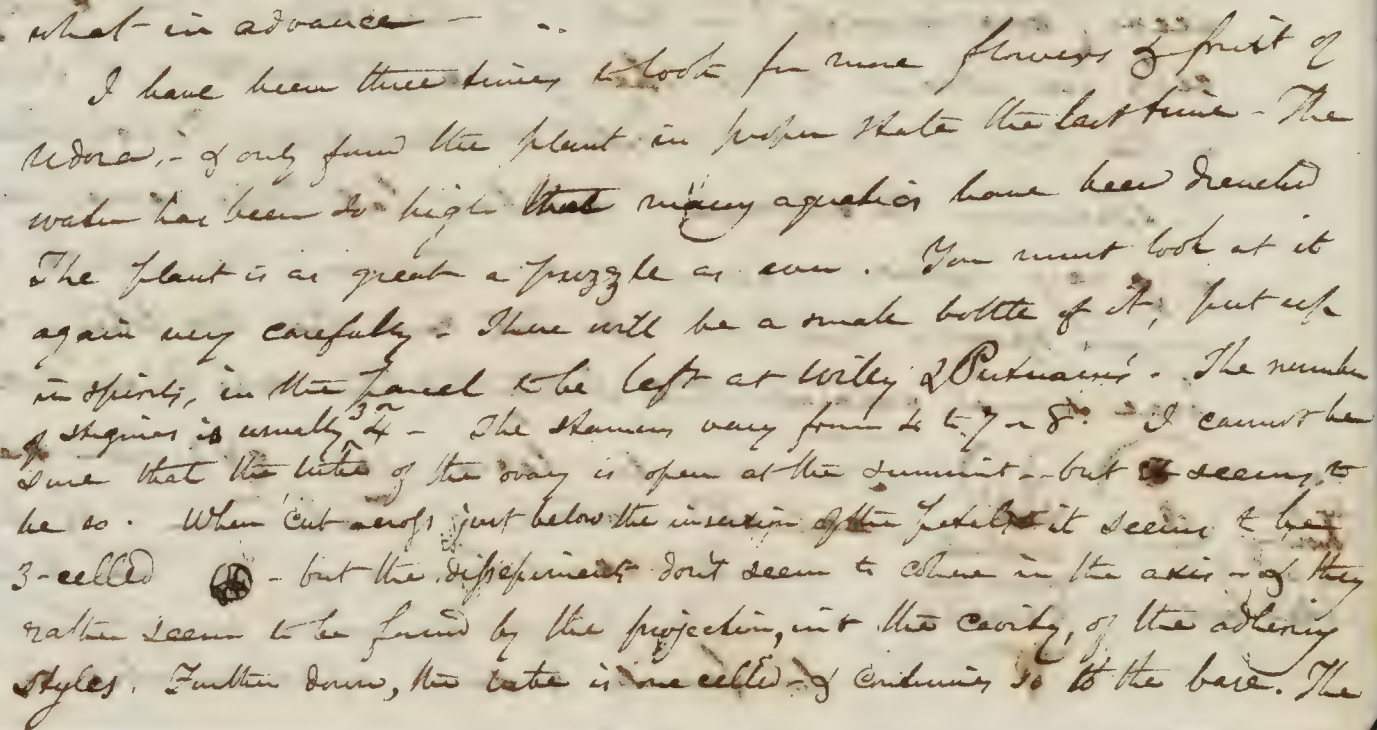 what in advance —
I have been three times to look for more flowers & fruit of
Udora, - & only found the plant in proper state the last time - The
water has been so high that many aquatics have been drenched
The plant is as great a puzzle as ever. You must look at it
again very carefully - There will be a small bottle of it, put up
in spirits, in the parcel to be left at Wiley & Putnam's. The number
of stigmas is usually 3 or 4 - The stamens vary from 4 to 7 or 8. I cannot be
sure that the tube of the ovary is open at the summit -- but it seems to
be so. When cut across just below the insertion of the petals it seems to be
3-celled - but the dissepiments don't seem to cohere in the axis - & they
rather seem to be formed by the projection, into the cavity, of the adhering
styles. Further down, the tube is one celled - & continues so to the base. The